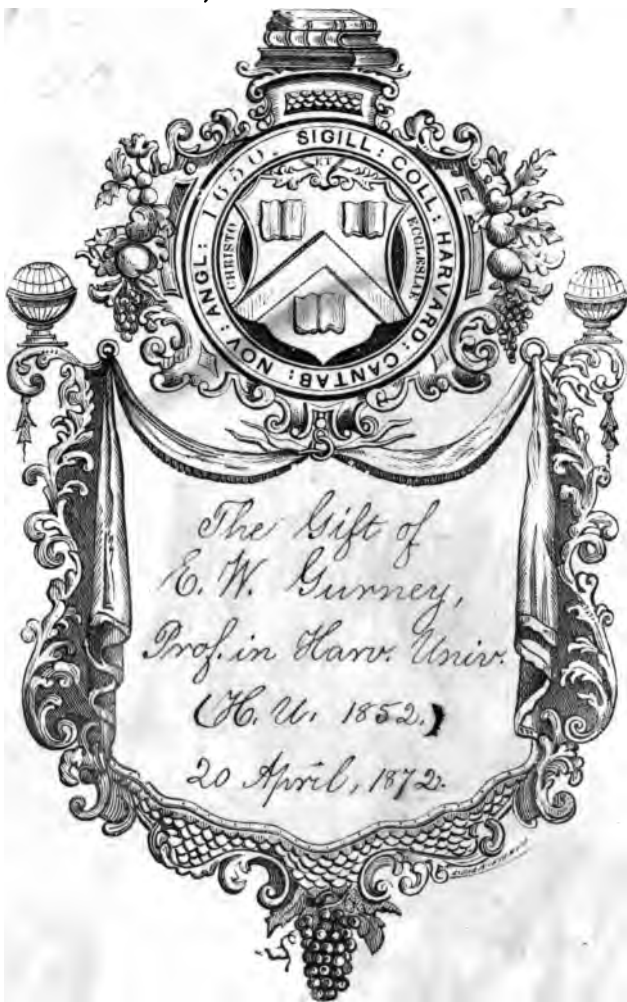 SIGILL: COLL: HARVARD: CANTAB: NOV: ANGL: 1650.
CHRISTO
ET
ECCLESIAE
The Gift of
E. W. Gurney,
Prof. in Harv. Univ.
(H. U. 1852.)
20 April, 1872.